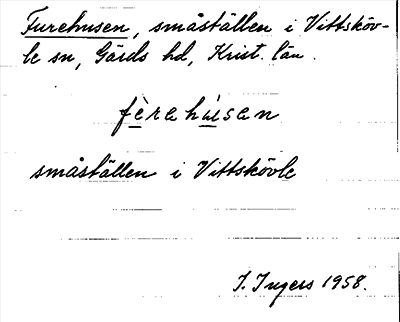 Furehusen, småställen i Vittsköv-
le sn, Gärds hd, Krist. län.
fèrahúsan
småställen i Vittskövle
I. Ingers 1958.